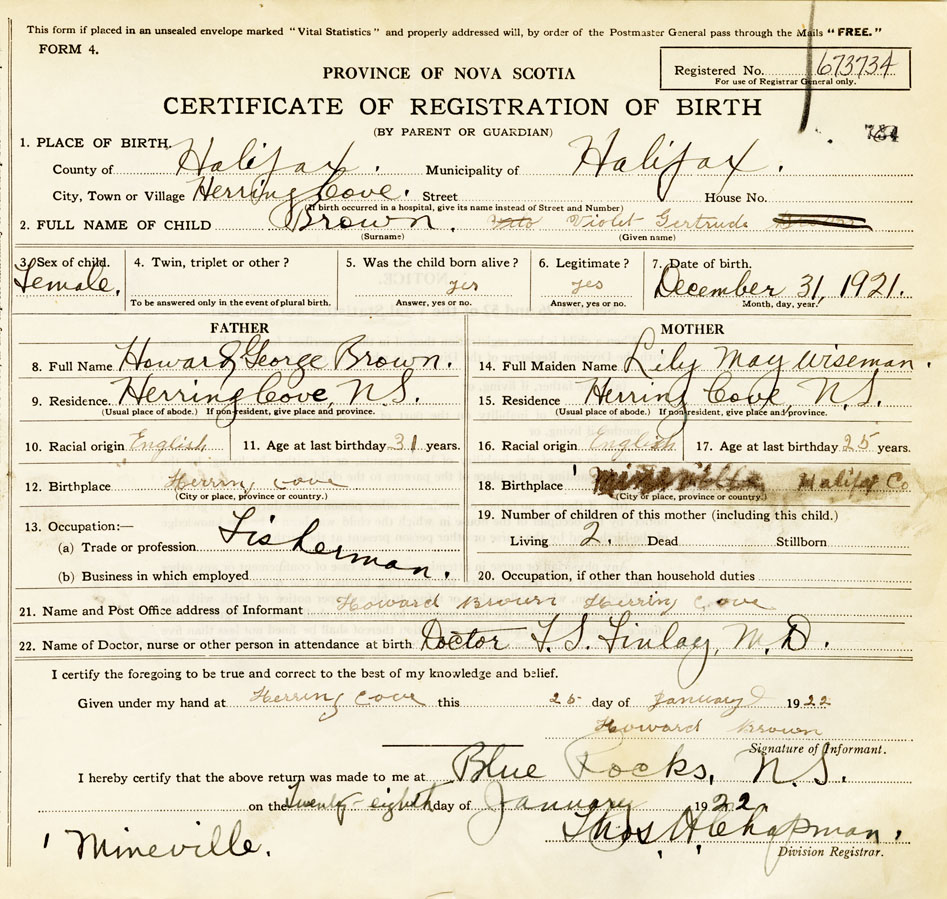 This form if placed in an unsealed envelope marked "Vital Statistics" and properly addressed will, by order of the Postmaster General pass through the Mails "FREE."
FORM 4.
PROVINCE OF NOVA SCOTIA
Registered No. 673734
For use of Registrar General only.
CERTIFICATE OF REGISTRATION OF BIRTH
(BY PARENT OR GUARDIAN)
784
1. PLACE OF BIRTH.
County of Halifax. Municipality of Halifax.
City, Town or Village Herring Cove. Street House No.
(If birth occurred in a hospital, give its name instead of Street and Number)
2. FULL NAME OF CHILD Brown. Violet Gertrude
(Surname) (Given name)
3. Sex of child. 4. Twin, triplet or other? 5. Was the child born alive? 6. Legitimate? 7. Date of birth.
Female. yes yes December 31, 1921.
To be answered only in the event of plural birth. Answer, yes or no. Answer, yes or no. Month, day, year.
FATHER MOTHER
8. Full Name Howard George Brown. 14. Full Maiden Name Lily May Wiseman.
9. Residence. Herring Cove, N.S. 15. Residence Herring Cove, N.S.
(Usual place of abode.) If non-resident, give place and province. (Usual place of abode.) If non-resident, give place and province.
10. Racial origin English 11. Age at last birthday 31 years. 16. Racial origin English 17. Age at last birthday 25 years.
12. Birthplace Herring Cove 18. Birthplace Mineville Halifax Co
(City or place, province or country.) (City or place, province or country.)
13. Occupation:— 19. Number of children of this mother (including this child.)
(a) Trade or profession Fisherman. Living 2. Dead Stillborn
(b) Business in which employed 20. Occupation, if other than household duties
21. Name and Post Office address of Informant Howard Brown Herring Cove
22. Name of Doctor, nurse or other person in attendance at birth Doctor F. S. Finlay, M.D.
I certify the foregoing to be true and correct to the best of my knowledge and belief.
Given under my hand at Herring Cove this 25 day of January 1922
Howard Brown
Signature of Informant.
I hereby certify that the above return was made to me at Blue Rocks, N.S.
on the Twenty-eighth day of January 1922.
Thos H Chapman.
Division Registrar.
' Mineville.